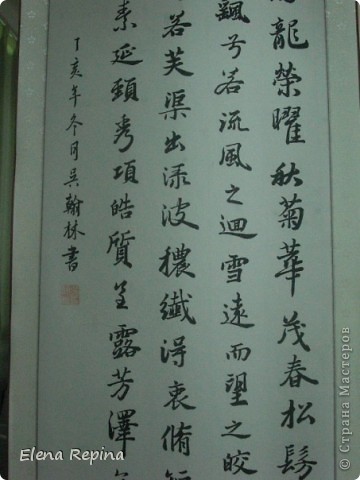 龍榮曜秋菊華茂春松髣
飄兮若流風之迴雪遠而望之皎
若芙渠出渌波穠纖得衷脩
素延頸秀項皓質呈露芳澤
丁亥年冬月吳翰林書
Elena Repina
© Страна Мастеров